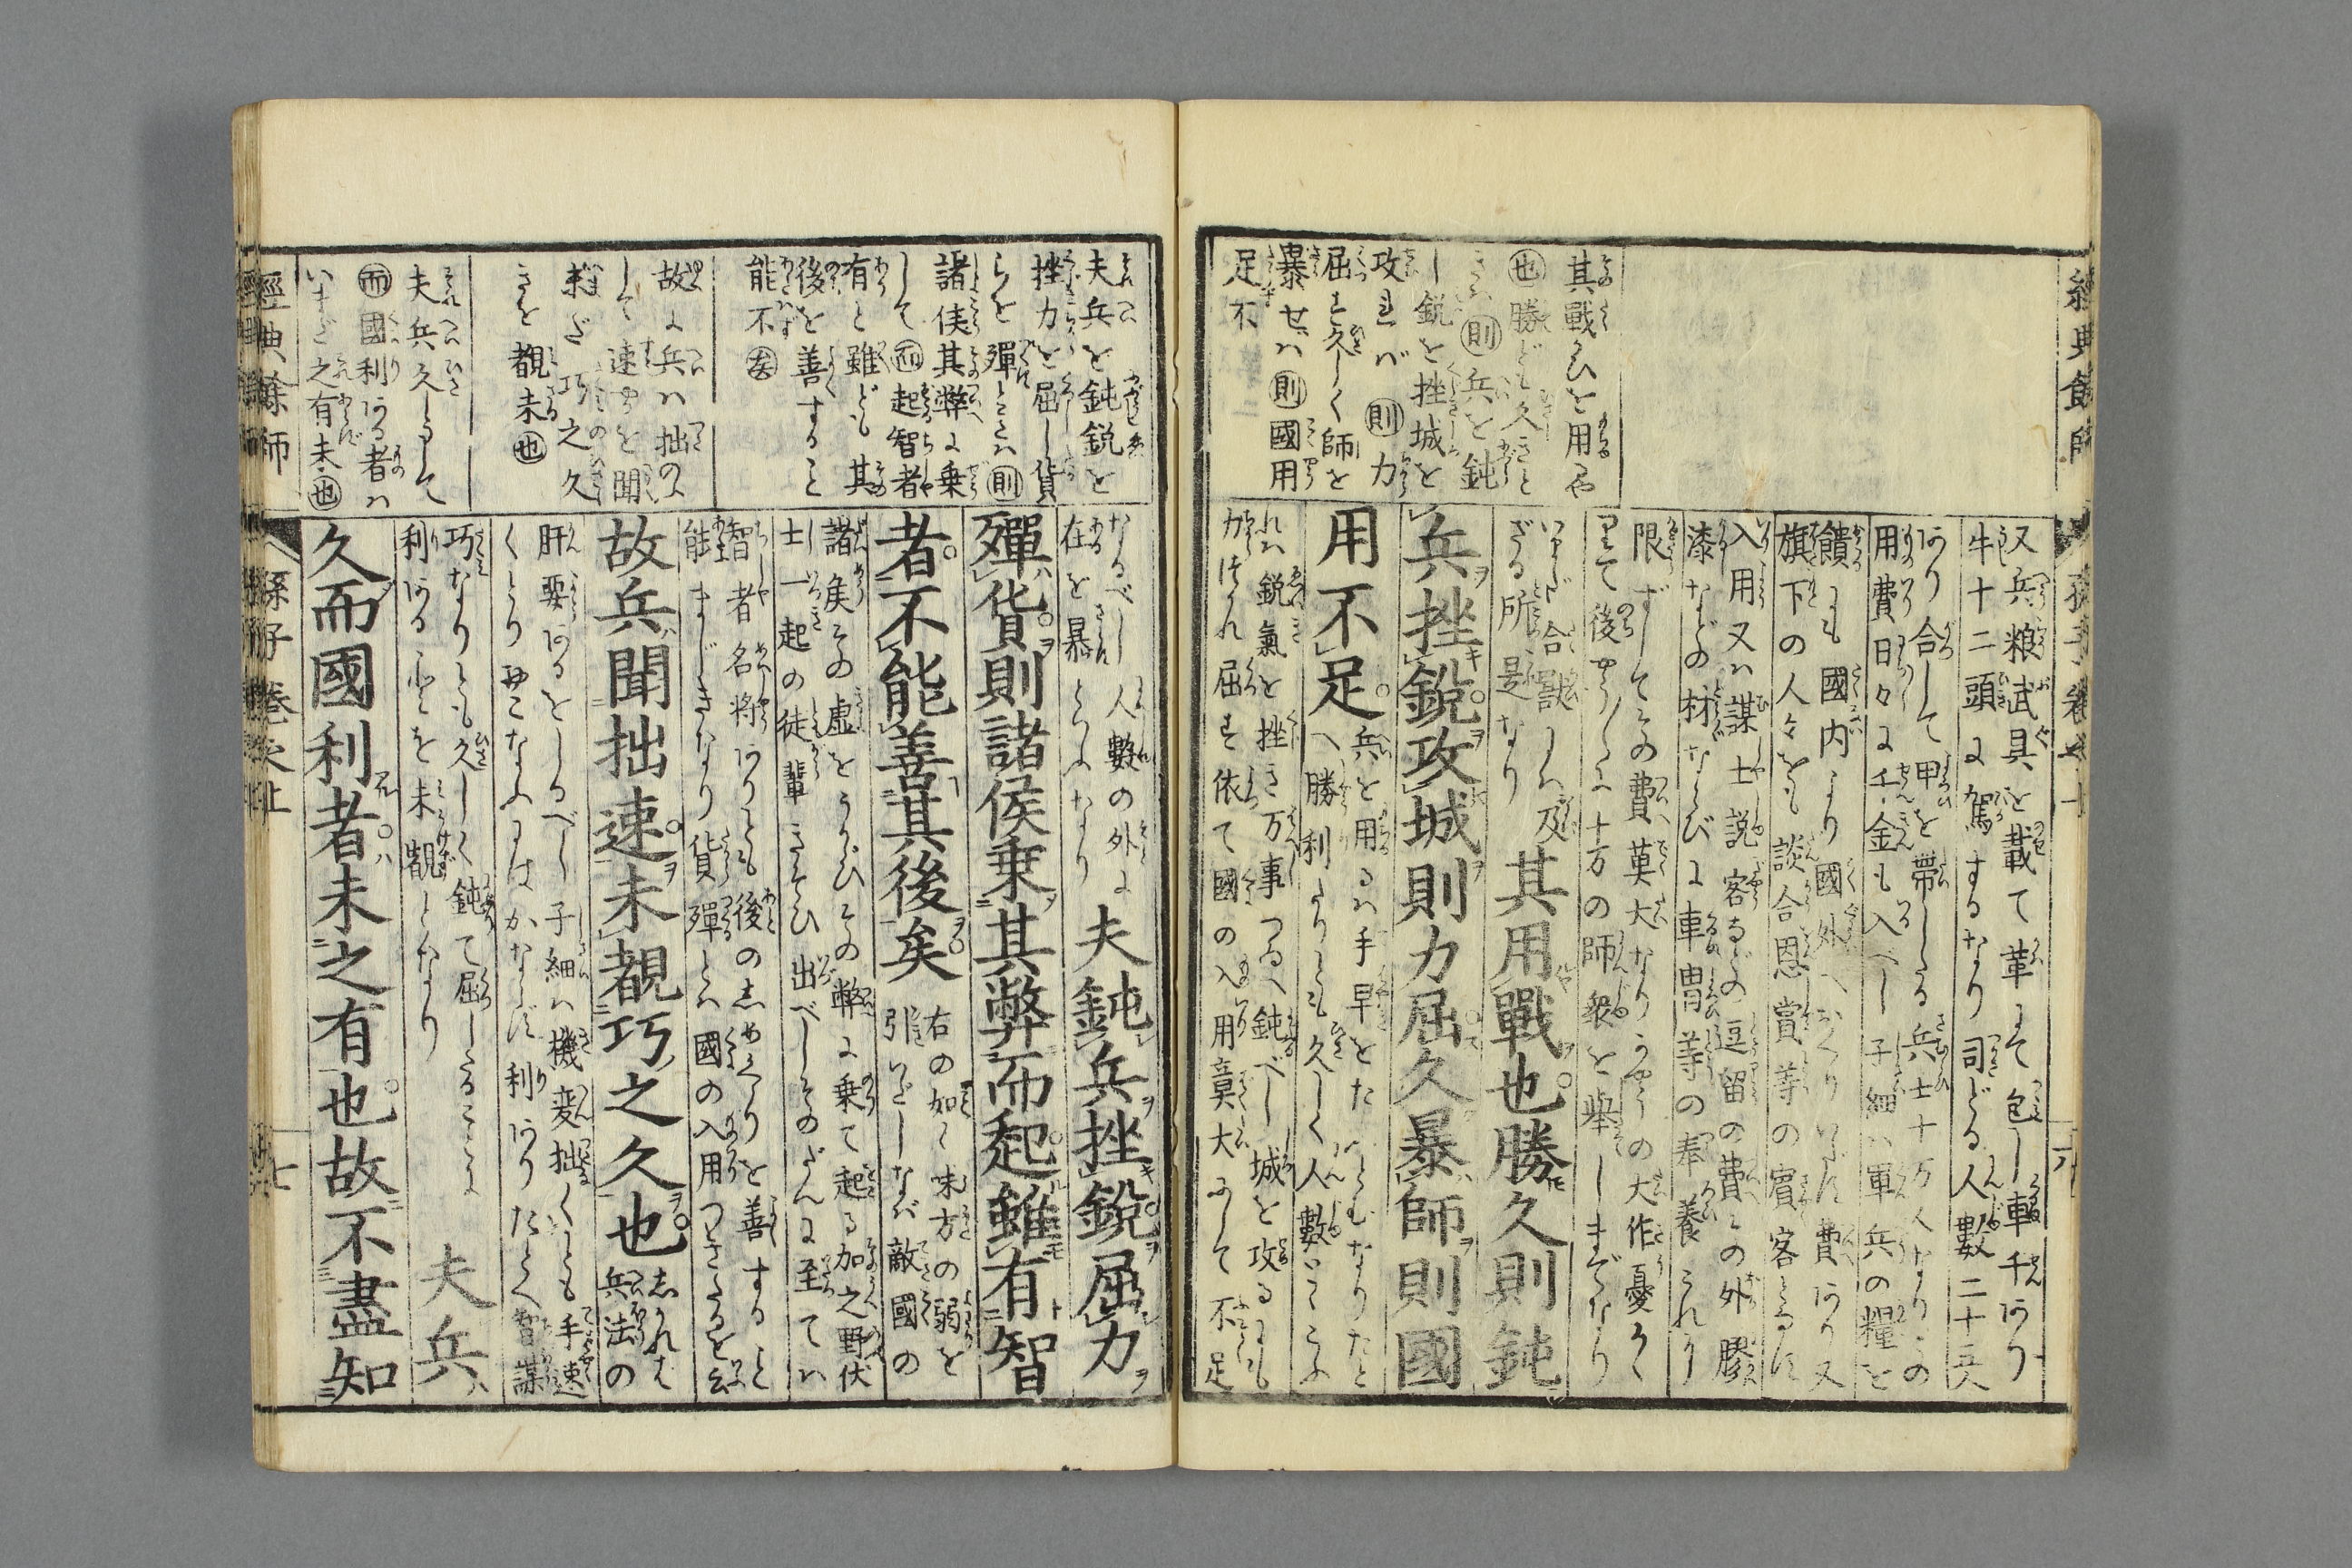 經典餘師
其戰ひを用や
也勝ども久きと
きハ則兵を鈍
し鋭を挫城を
攻れバ則力
屈す久しく師を
暴せバ則國用
足不
又兵粮武具を載て革にて包し車千あり
牛十二頭に駕するなり司どる人數二十五人
あり合して甲を帶したる兵士十万人なりこの
用費日々に千金も入べし子細ハ軍兵の糧を
饋にも國内より國外へおくり費あり又
旗下の人々をも談合恩賞等の賓客
入用又ハ謀士説客などの逗留の費その外膠
漆などの材ならびに車冑等の奉養
限ずしてその費莫大なりの大作憂
後十方の師衆を舉しまぜなり
ざる所是なり其用戰也勝久則鈍
兵挫鋭攻城則力屈久暴師則國
用不足
兵を用るハ手早をたつとむなりたと
へ勝利ありとも久しく人數
れハ鋭氣を挫き万事つゐへ鈍べし城を攻るにも
力つかれ屈す依て國の入用莫大にして不足
夫兵を鈍鋭を
挫力を屈し貨
らを殫ときハ則
諸侯其弊に乗
して而起智者
有と雖ども其
後を善すること
能不矣
故に兵ハ拙のに
して速やかを聞
未だ巧之久
きを覩未也
夫兵久しふして
而國利ある者ハ
いまだ之有未也
なるべし人數の外に
在を暴といふなり夫鈍兵挫鋭屈力
殫貨則諸侯乗其弊而起雖有智
者不能善其後矣
右の如く味方の弱を
引いだしなバ敵國の
諸侯その虚をうかゞひその弊に乗て起る加之野伏
士一起の徒輩きそひ出べしそのだんに至てハ
智者名将ありとも後のしめくゝりを善すること
能まじきなり貨殫とハ國の入用つきたるを云
故兵聞拙速未覩巧之久也
しかれば
兵法の
肝要あるをしるべし子細ハ機変拙くとも手速
くとりおこなふにはかならず利ありたとへ智謀
巧なりとも久しく鈍て屈したることに
利あることを未覩となり夫兵
久而國利者未之有也故不盡知
經典餘師 孫子 卷之上 七